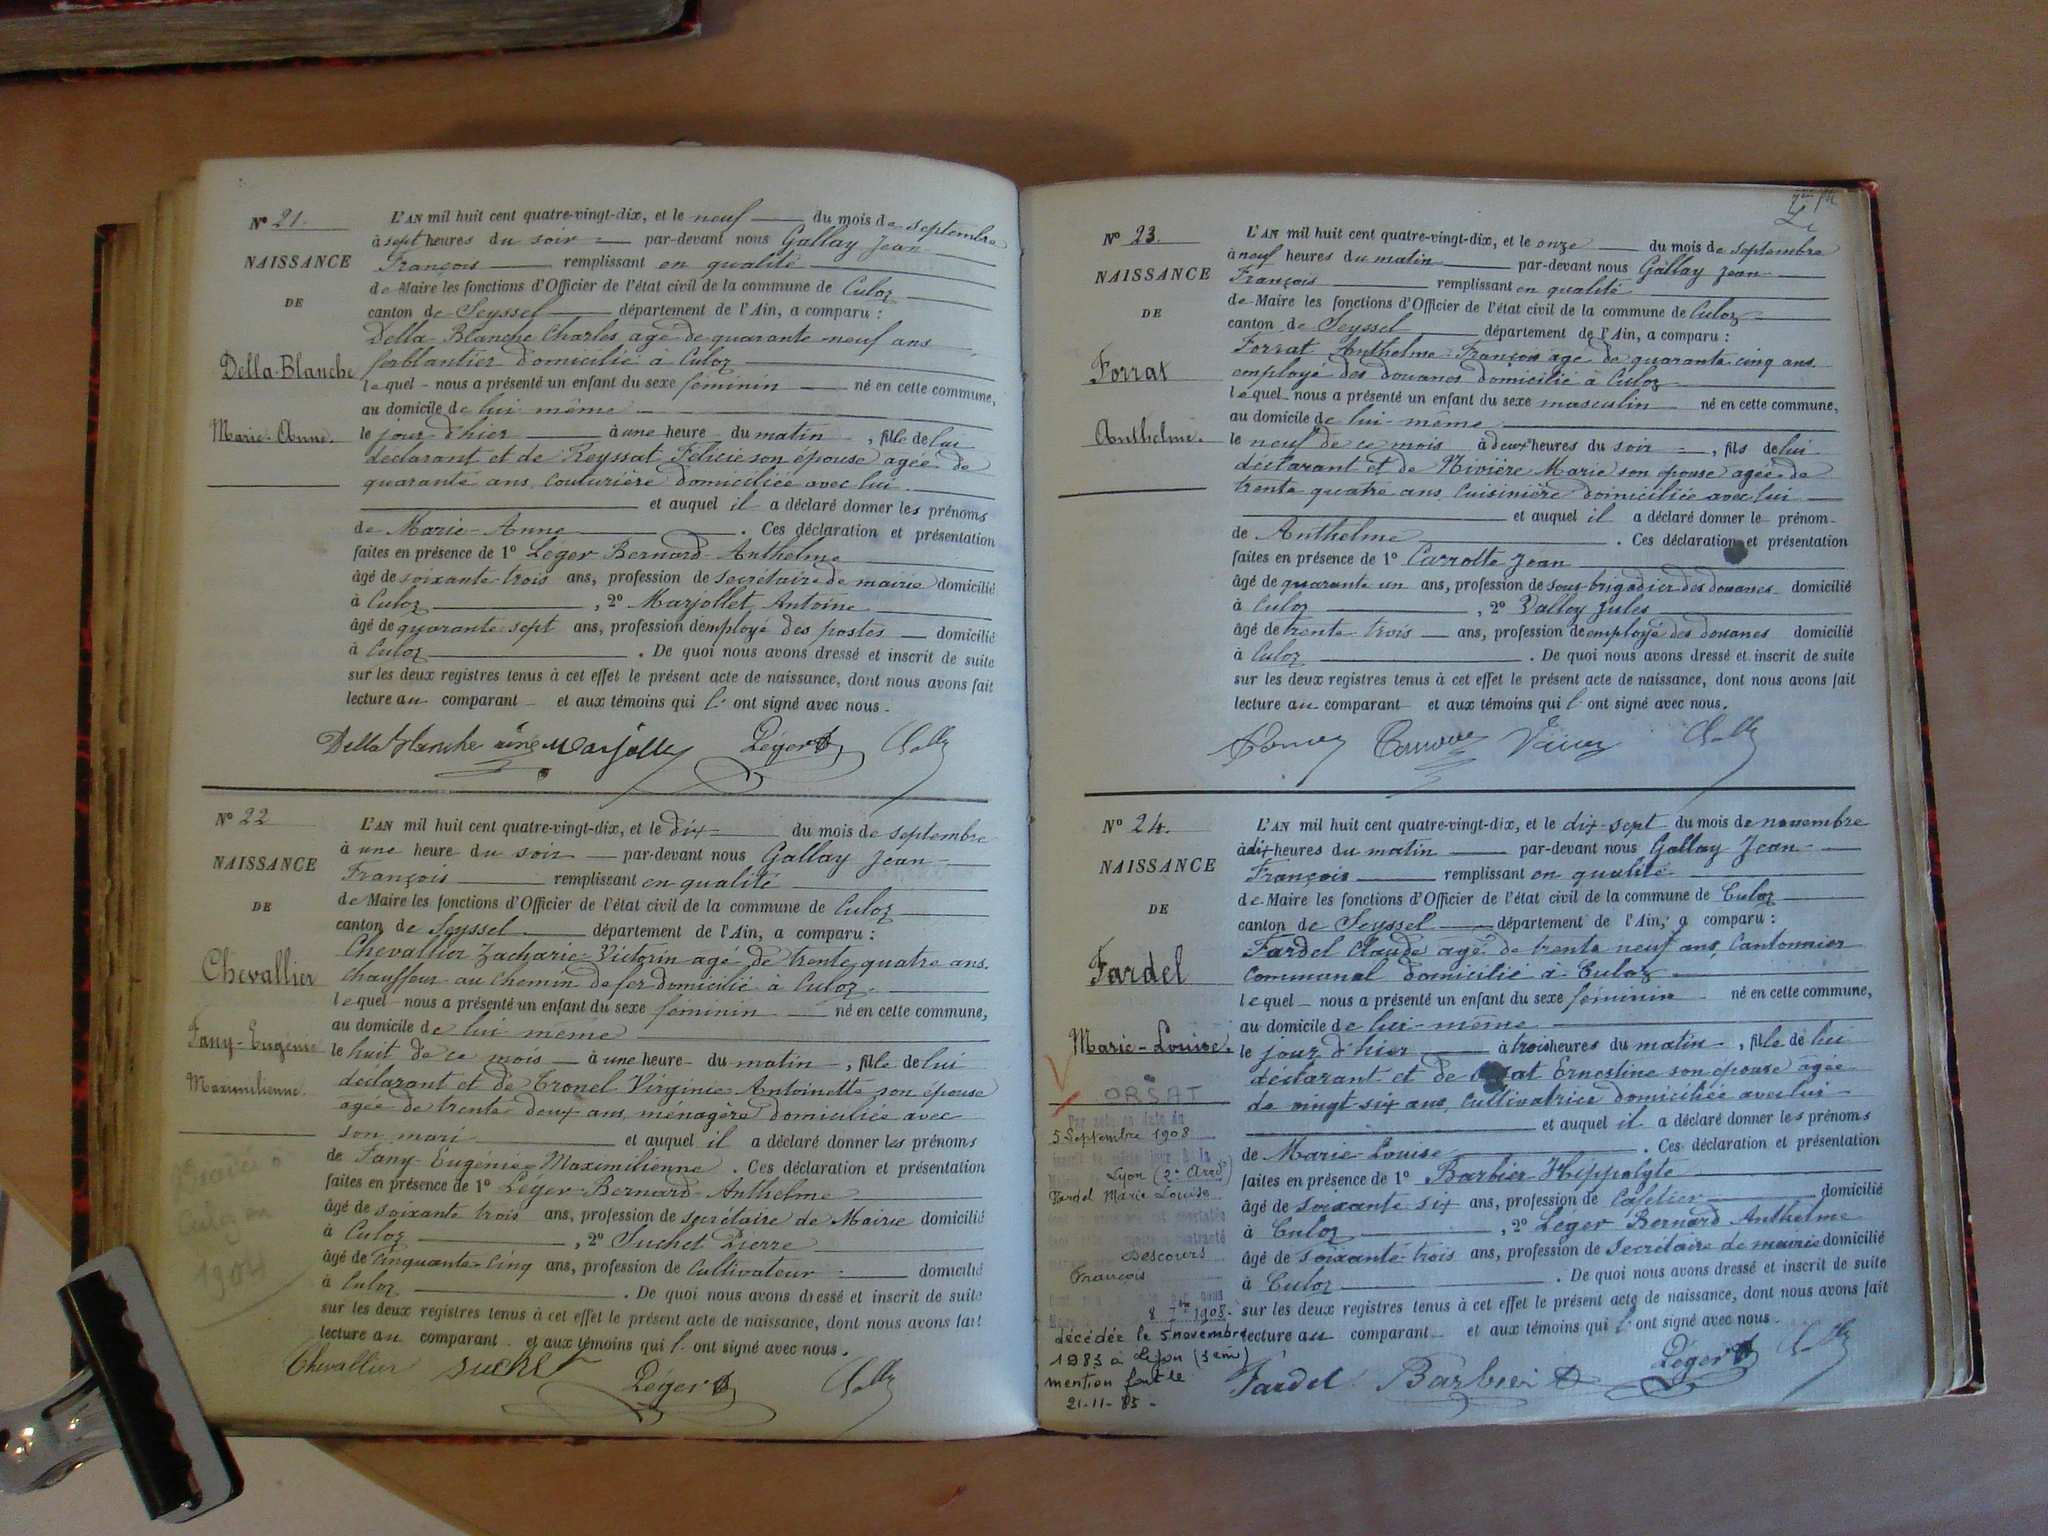 N° 21.
NAISSANCE
DE
Della-Blanche
Marie-Anne.
L'AN mil huit cent quatre-vingt-dix, et le neuf du mois de septembre
à sept heures du soir par-devant nous Gallay Jean
François remplissant en qualité
de Maire les fonctions d'Officier de l'état civil de la commune de Culoz
canton de Seyssel département de l'Ain, a comparu :
Della-Blanche Charles agé de quarante neuf ans
ferblantier domicilié à Culoz
lequel nous a présenté un enfant du sexe féminin né en cette commune,
au domicile de lui même
le jour d'hier à une heure du matin, fille de lui
déclarant et de Reyssat Félicie son épouse agée de
quarante ans, couturière domiciliée avec lui
et auquel il a déclaré donner les prénoms
de Marie-Anne. Ces déclaration et présentation
faites en présence de 1° Léger Bernard-Anthelme
âgé de soixante trois ans, profession de secrétaire de mairie domicilié
à Culoz, 2° Marjollet Antoine
âgé de quarante sept ans, profession d'employé des postes domicilié
à Culoz. De quoi nous avons dressé et inscrit de suite
sur les deux registres tenus à cet effet le présent acte de naissance, dont nous avons fait
lecture au comparant et aux témoins qui l'ont signé avec nous.
Della blanche Marjolle Léger
N° 22
NAISSANCE
DE
Chevallier
Fany-Eugénie
Maximilienne.
Culoz
1904
L'AN mil huit cent quatre-vingt-dix, et le dix du mois de septembre
à une heure du soir par-devant nous Gallay Jean
François remplissant en qualité
de Maire les fonctions d'Officier de l'état civil de la commune de Culoz
canton de Seyssel département de l'Ain, a comparu :
Chevallier Zacharie-Victorin agé de trente quatre ans.
chauffeur au chemin de fer domicilié à Culoz.
lequel nous a présenté un enfant du sexe féminin né en cette commune,
au domicile de lui même
le huit de ce mois à une heure du matin, fille de lui
déclarant et de Tronel Virginie Antoinette son épouse
agée de trente deux ans, ménagère domiciliée avec
son mari et auquel il a déclaré donner les prénoms
de Fany-Eugénie-Maximilienne. Ces déclaration et présentation
faites en présence de 1° Léger-Bernard-Anthelme
âgé de soixante trois ans, profession de secrétaire de Mairie domicilié
à Culoz, 2° Suchet Pierre
âgé de cinquante-cinq ans, profession de cultivateur domicilié
à Culoz. De quoi nous avons dressé et inscrit de suite
sur les deux registres tenus à cet effet le présent acte de naissance, dont nous avons fait
lecture au comparant et aux témoins qui l'ont signé avec nous.
Chevallier Suchet Léger
N° 23.
NAISSANCE
DE
Forrat
Anthelme.
L'AN mil huit cent quatre-vingt-dix, et le onze du mois de septembre
à neuf heures du matin par-devant nous Gallay Jean
François remplissant en qualité
de Maire les fonctions d'Officier de l'état civil de la commune de Culoz
canton de Seyssel département de l'Ain, a comparu :
Forrat Anthelme François agé de quarante cinq ans
employé des douanes domicilié à Culoz
lequel nous a présenté un enfant du sexe masculin né en cette commune,
au domicile de lui-même
le neuf de ce mois à deux heures du soir, fils de lui
déclarant et de Rivière Marie son épouse agée de
trente quatre ans, cuisinière domiciliée avec lui
et auquel il a déclaré donner le prénom
de Anthelme. Ces déclaration et présentation
faites en présence de 1° Carrotte Jean
âgé de quarante un ans, profession de sous-brigadier des douanes domicilié
à Culoz, 2° Valley Jules
âgé de trente trois ans, profession de employé des douanes domicilié
à Culoz. De quoi nous avons dressé et inscrit de suite
sur les deux registres tenus à cet effet le présent acte de naissance, dont nous avons fait
lecture au comparant et aux témoins qui l'ont signé avec nous.
N° 24.
NAISSANCE
DE
Fardel
Marie-Louise.
ORSAT
Par acte en date du
5 Septembre 1908
Lyon (2e Arrdt)
Fardel Marie Louise
contracté
Descours
François
8 7bre 1908.
décédée le 5 novembre
1985 à Lyon (3em)
mention fait le
21-11-85
L'AN mil huit cent quatre-vingt-dix, et le dix-sept du mois de novembre
à dix heures du matin par-devant nous Gallay Jean
François remplissant en qualité
de Maire les fonctions d'Officier de l'état civil de la commune de Culoz
canton de Seyssel département de l'Ain, a comparu :
Fardel Claude agé de trente neuf ans, Cantonnier
communal domicilié à Culoz
lequel nous a présenté un enfant du sexe féminin né en cette commune,
au domicile de lui-même
le jour d'hier à trois heures du matin, fille de lui
déclarant et de Ernestine son épouse agée
de vingt six ans, cultivatrice domiciliée avec lui
et auquel il a déclaré donner les prénoms
de Marie-Louise. Ces déclaration et présentation
faites en présence de 1° Barbier Hippolyte
âgé de soixante six ans, profession de Cafetier domicilié
à Culoz, 2° Léger Bernard Anthelme
âgé de soixante trois ans, profession de secrétaire de mairie domicilié
à Culoz. De quoi nous avons dressé et inscrit de suite
sur les deux registres tenus à cet effet le présent acte de naissance, dont nous avons fait
lecture au comparant et aux témoins qui l'ont signé avec nous.
Fardel Barbier Léger